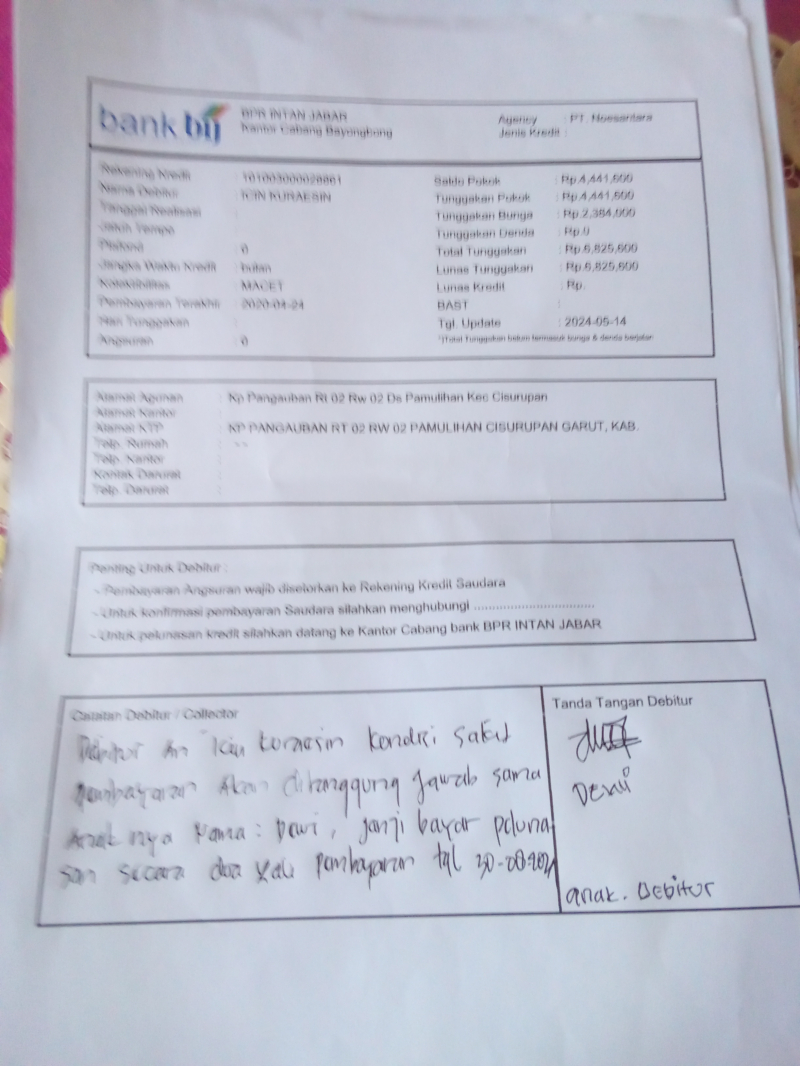 bank bij
BPR INTAN JABAR
Kantor Cabang Bayongbong
Agency : PT. Noesantara
Jenis Kredit :
Rekening Kredit : 101003000028861
Nama Debitur : ICIN KURAESIN
Tanggal Realisasi :
Jatuh Tempo :
Plafond : 0
Jangka Waktu Kredit : bulan
Kolektibilitas : MACET
Pembayaran Terakhir : 2020-04-24
Hari Tunggakan :
Angsuran : 0
Saldo Pokok : Rp.4,441,600
Tunggakan Pokok : Rp.4,441,600
Tunggakan Bunga : Rp.2,384,000
Tunggakan Denda : Rp.0
Total Tunggakan : Rp.6,825,600
Lunas Tunggakan : Rp.6,825,600
Lunas Kredit : Rp.
BAST :
Tgl. Update : 2024-05-14
*)Total Tunggakan belum termasuk bunga & denda berjalan
Alamat Agunan : Kp Pangauban Rt 02 Rw 02 Ds Pamulihan Kec Cisurupan
Alamat Kantor :
Alamat KTP : KP PANGAUBAN RT 02 RW 02 PAMULIHAN CISURUPAN GARUT, KAB.
Telp. Rumah : --
Telp. Kantor :
Kontak Darurat :
Telp. Darurat :
Penting Untuk Debitur :
- Pembayaran Angsuran wajib disetorkan ke Rekening Kredit Saudara
- Untuk konfirmasi pembayaran Saudara silahkan menghubungi ................................
- Untuk pelunasan kredit silahkan datang ke Kantor Cabang bank BPR INTAN JABAR
Catatan Debitur / Collector
Debitur an Icin kuraesin kondisi sakit
pembayaran akan ditanggung jawab sama
anak nya nama : Dewi, janji bayar peluna
san secara dua kali pembayaran tgl 30-08-
Tanda Tangan Debitur
Dewi
anak. Debitur